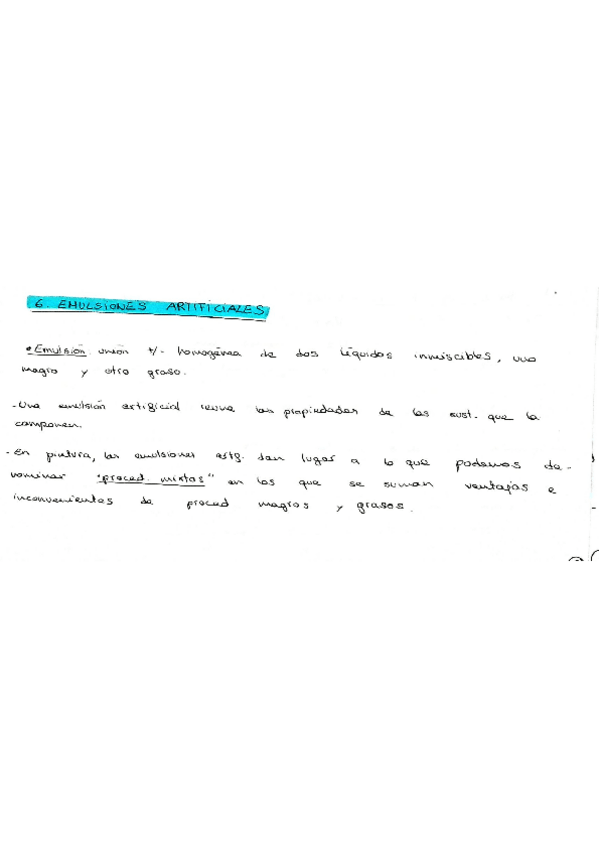 6. EMULSIONES ARTIFICIALES
• Emulsión unión +/- homogénea de dos líquidos inmiscibles, uno
magro y otro graso.
- Una emulsión artificial reune las propiedades de las sust. que la
componen.
- En pintura, las emulsiones artif. dan lugar a lo que podemos de-
nominar "proced. mixtos" en los que se suman ventajas e
inconvenientes de proced magros y grasos.